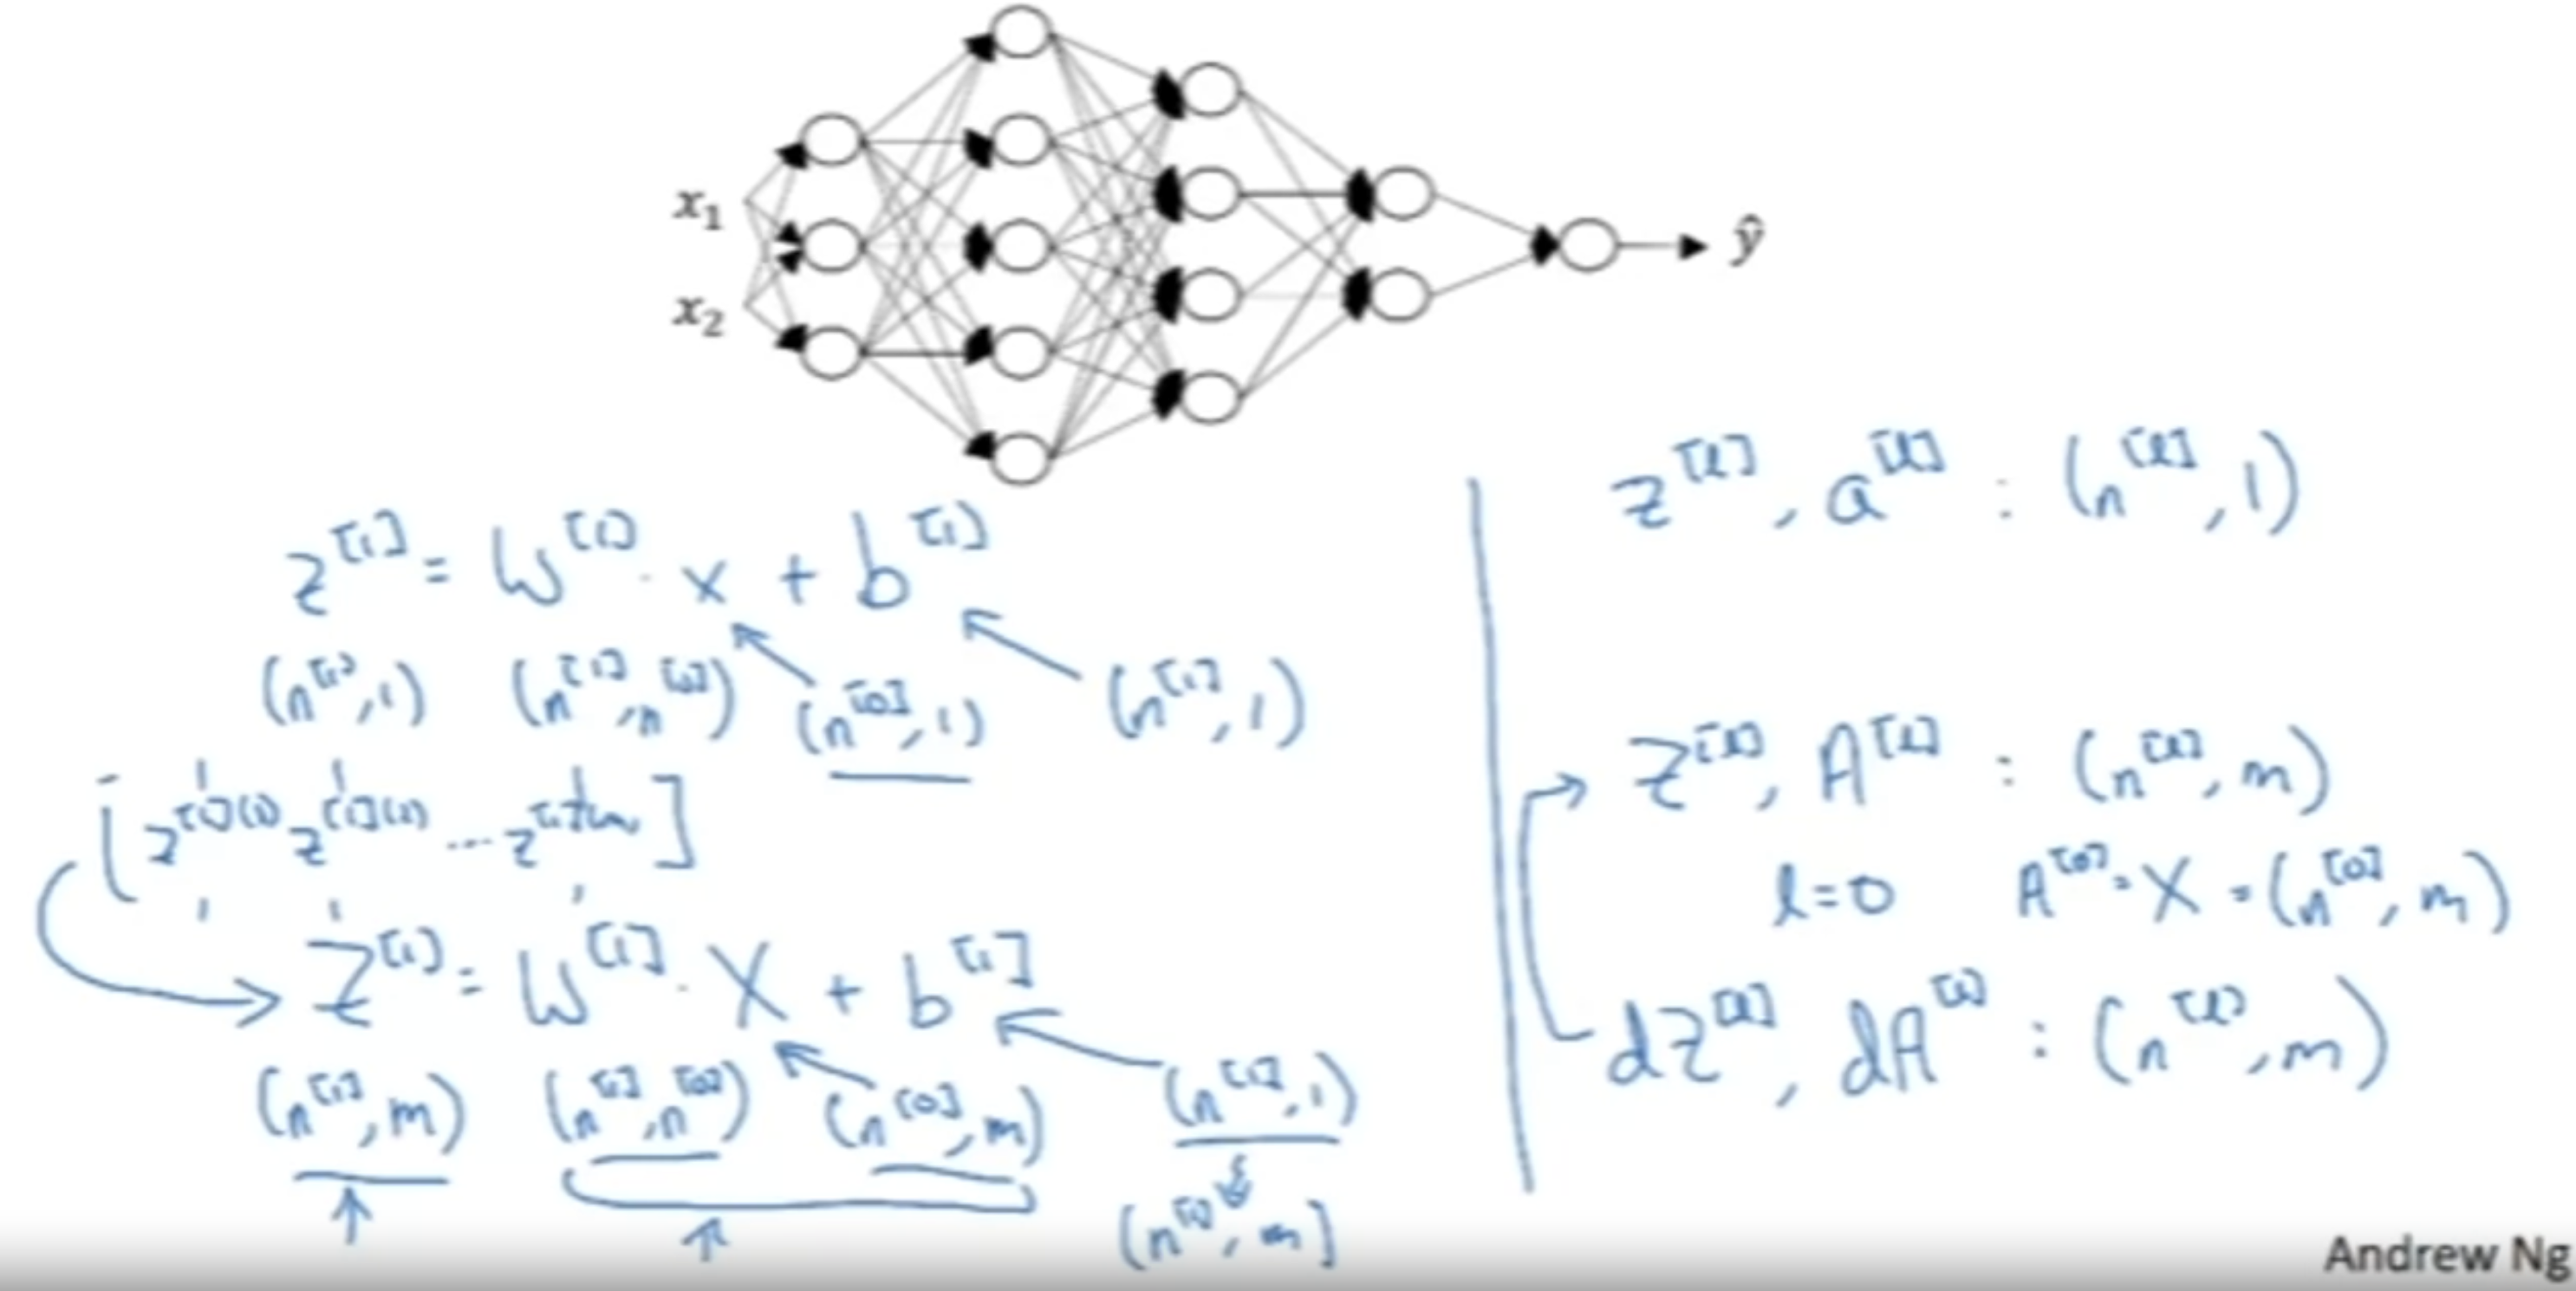 x₁
x₂
ŷ
z^[1] = W^[1] · x + b^[1]
(n^[1], 1) (n^[1], n^[0]) (n^[0], 1) (n^[1], 1)
[z^[1](1) z^[1](2) ... z^[1](m)]
Z^[1] = W^[1] · X + b^[1]
(n^[1], m) (n^[1], n^[0]) (n^[0], m) (n^[1], 1)
(n^[1], m)
z^[l], a^[l] : (n^[l], 1)
Z^[l], A^[l] : (n^[l], m)
l=0 A^[0] = X = (n^[0], m)
dZ^[l], dA^[l] : (n^[l], m)
Andrew Ng